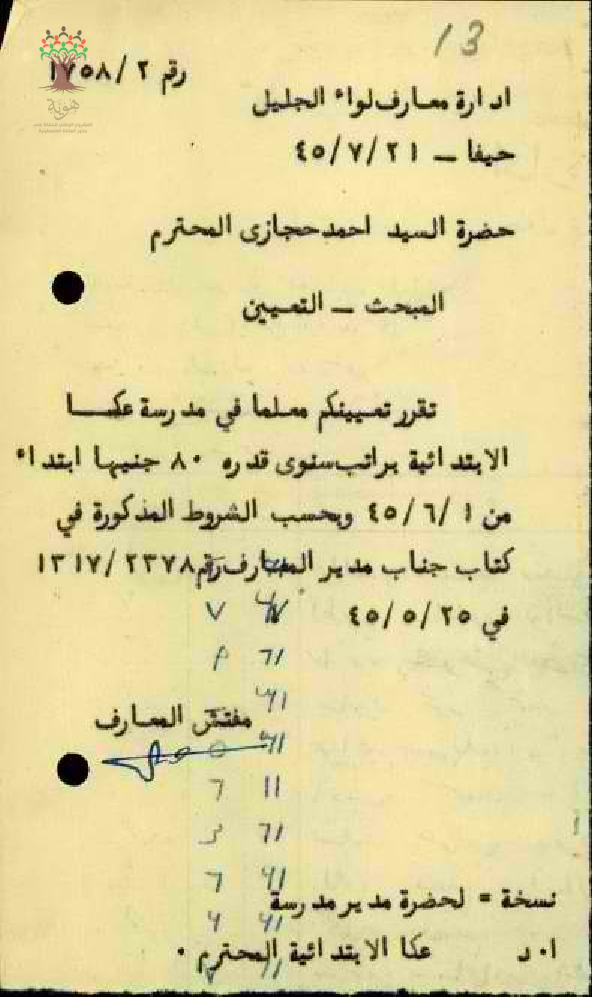 13
رقم ٢/١٧٥٨
هوية
ادارة معارف لواء الجليل
حيفا ـ ٤٥/٧/٢١
حضرة السيد احمد حجازى المحترم
المبحث ـ التعيين
تقرر تعيينكم معلما في مدرسة عكا
الابتدائية براتب سنوى قدره ٨٠ جنيها ابتداء
من ٤٥/٦/١ وبحسب الشروط المذكورة في
كتاب جناب مدير المعارف رقم ١٣١٧/٢٣٧٨
في ٤٥/٥/٢٥
مفتش المعارف
نسخة = لحضرة مدير مدرسة
ا٠د عكا الابتدائية المحترم ٠